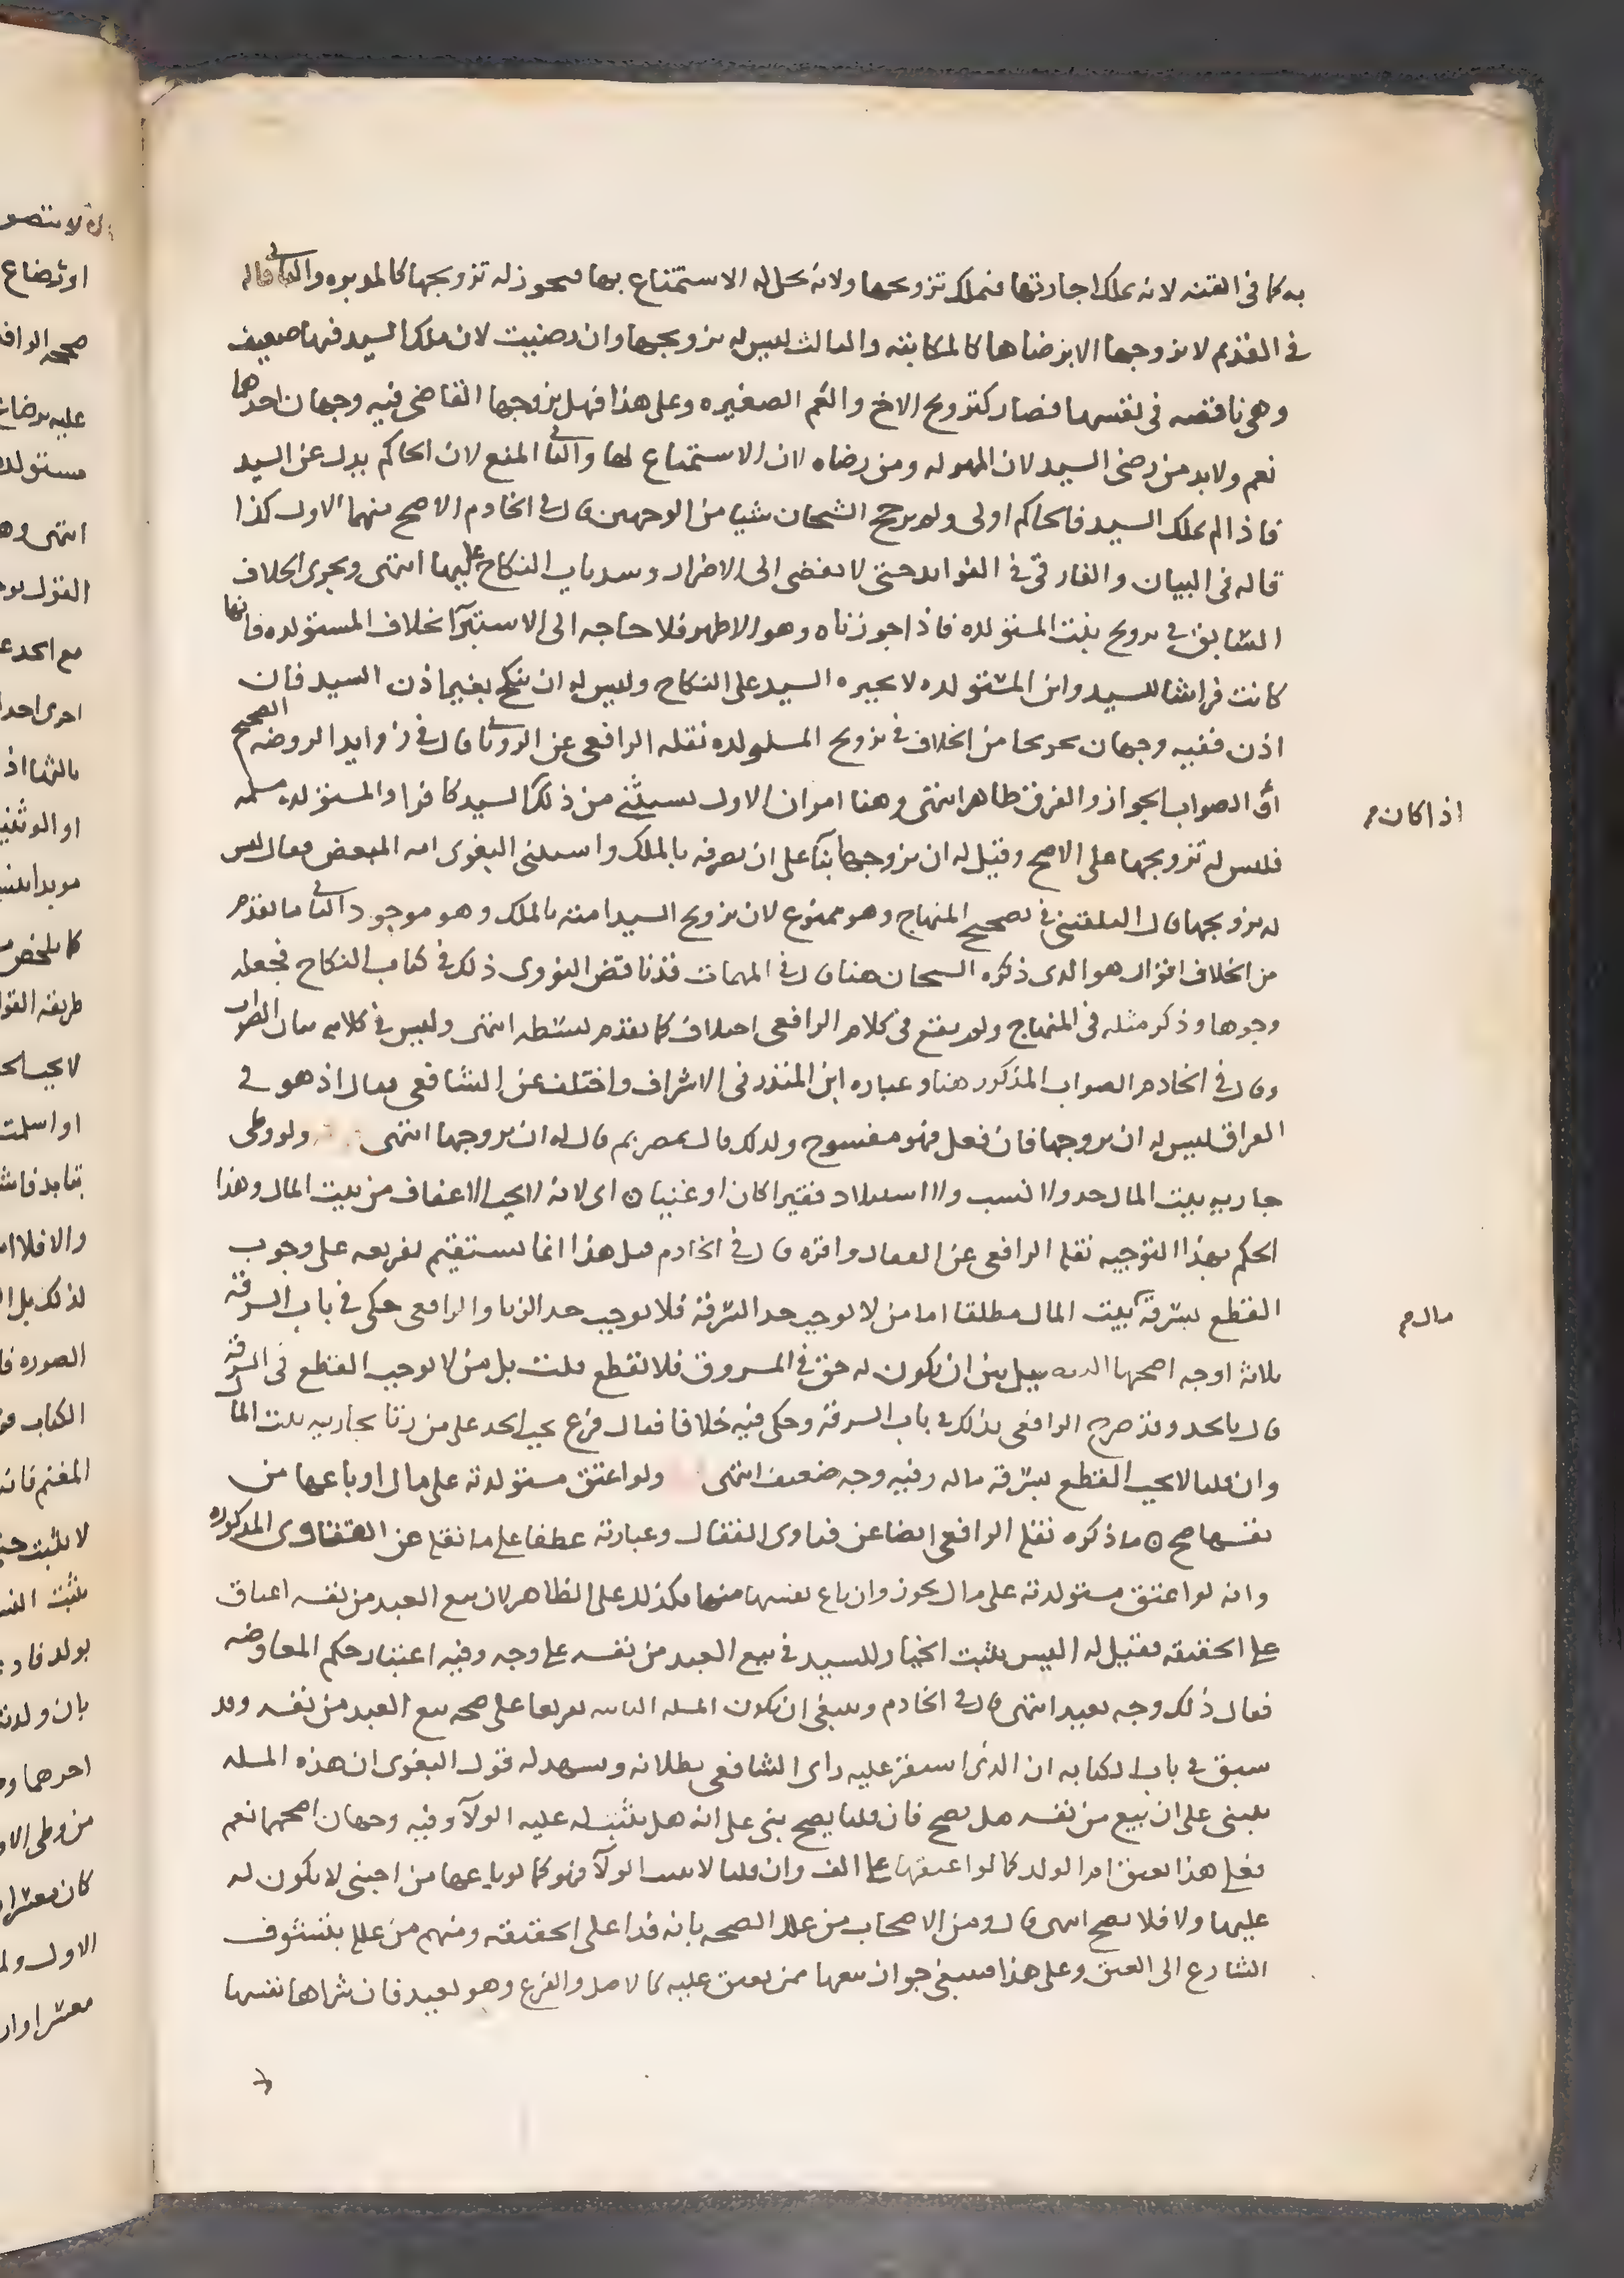 به كما فى القنه لانه يملك اجارتها فيملك تزويجها ولانه يحل له الاستمتاع بها فيجوز له تزويجها كالمدبره والثانى قاله
فى القديم لا يزوجها الا برضاها كالمكاتبه والثالث ليس له تزويجها وان رضيت لان ملك السيد فيها ضعيف
وهى ناقصه فى نفسها فصار كتزويج الاخ والعم الصغيره وعلى هذا فهل يزوجها القاضى فيه وجهان احدهما
نعم ولا بد من رضى السيد لان المهر له ومن رضاه لان الاستمتاع لها والثانى المنع لان الحاكم بدل عن السيد
فاذا لم يملك السيد فالحاكم اولى ولم يرجح الشيخان شيا من الوجهين قال فى الخادم الاصح منهما الاول كذا
قاله فى البيان والفارقى فى الفوايد حتى لا يفضى الى الاضرار وسد باب النكاح عليها انتهى ويجرى الخلاف
السابق فى تزويج بنت المستولده فاذا جوزناه وهو الاظهر فلا حاجه الى الاستبرآ بخلاف المستولده فانها
كانت فراشا للسيد وابن المستولده لا يجبره السيد على النكاح وليس له ان ينكح بغير اذن السيد فان
اذن ففيه وجهان تخريجا من الخلاف فى تزويج المستولده نقله الرافعى عن الرويانى قال فى زوايد الروضه الصحيح
او الصواب الجواز والفرق ظاهر انتهى وهنا امران الاول يستثنى من ذلك السيد كافرا والمستولده مسلمه
اذا كان
فليس له تزويجها على الاصح وقيل له ان يزوجها بنآ على ان تصرفه بالملك واستثنى البغوى امه المبعض فقال ليس
له تزويجها قال البلقينى فى تصحيح المنهاج وهو ممنوع لان تزويج السيد امته بالملك وهو موجود الثانى ما تقدم
من الخلاف اقوال هو الذى ذكره الشيخان هنا قال فى المهمات قد ناقض النووى ذلك فى كتاب النكاح فجعله
وجوها وذكر مثله فى المنهاج ولم يقع فى كلام الرافعى اختلاف كما تقدم بسطه انتهى وليس فى كلامه بيان الصواب
وقال فى الخادم الصواب المذكور هنا وعباره ابن المنذر فى الاشراف واختلف عن الشافعى فقال اذ هو فى
العراق ليس له ان يزوجها فان فعل فهو مفسوخ ولذلك قال بمصر ثم قال له ان يزوجها انتهى ولو وطى
جاريه بيت المال حد ولا نسب ولا استيلاد فقيرا كان او غنيا ه اى لانه لا يجب الاعفاف من بيت المال وهذا
الحكم بهذا التوجيه نقله الرافعى عن القفال واقره قال فى الخادم قيل هذا انما يستقيم تفريعه على وجوب
القطع بسرقة بيت المال مطلقا اما من لا يوجب حد السرقة فلا يوجب حد الزنا والرافعى حكى فى باب السرقة
مال
ثلاثة اوجه اصحها بين ان يكون له حق فى المسروق فلا نقطع قلت بل من لا يوجب القطع فى السرقة
قال بالحد وقد صرح الرافعى بذلك فى باب السرقة وحكى فيه خلافا فقال فرع يجب الحد على من زنا بجاريه بيت المال
وان قلنا لا يجب القطع بسرقة ماله وفيه وجه ضعيف انتهى ولو اعتق مستولدته على مال او باعها من
نفسها صح ه ما ذكره نقله الرافعى ايضا عن فتاوى القفال وعبارته عطفا على ما نقله عن الفتاوى المذكوره
وانه لو اعتق مستولدته على مال يجوز وان باع نفسها منها فكذلك على الظاهر لان بيع العبد من نفسه اعتاق
على الحقيقه فقيل له اليس يثبت الخيار للسيد فى بيع العبد من نفسه على وجه وفيه اعتبار حكم المعاوضه
فقال ذلك وجه بعيد انتهى قال فى الخادم وينبغى ان تكون المسله الثانيه تفريعا على صحه بيع العبد من نفسه وقد
سبق فى باب الكتابه ان الذى استقر عليه راى الشافعى بطلانه ويشهد له قول البغوى ان هذه المسله
تنبنى على ان بيع من نفسه هل يصح فان قلنا يصح بنى على انه هل يثبت له عليه الولآ وفيه وجهان اصحهما نعم
فعلى هذا تعتق ام الولد كما لو اعتقها على الف وان قلنا لا يثبت الولآ فهو كما لو باعها من اجنبى لا يكون له
عليها ولا فلا يصح انتهى قال ومن الاصحاب من علل الصحه بانه فدا على الحقيقه ومنهم من علله بتشوف
الشارع الى العتق وعلى هذا فينبغى جواز بيعها ممن تعتق عليه كالاصل والفرع وهو بعيد فان شراها نفسها